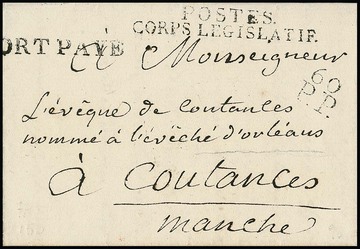 POSTES.
CORPS LEGISLATIF.
ORT PAYÉ
à Monseigneur
60
P.P.
L'évêque de Coutances
nommé à l'évêché d'orléans
à Coutances
manche